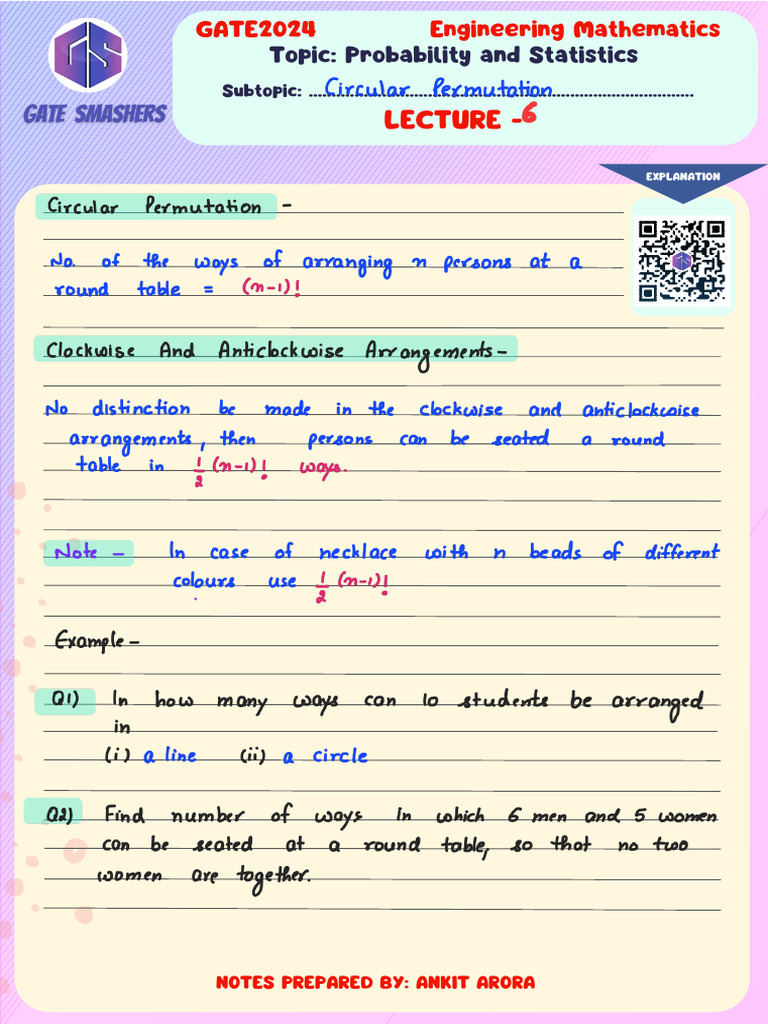 GATE2024 Engineering Mathematics
Topic: Probability and Statistics
Subtopic: Circular Permutation
LECTURE - 6
GS
GATE SMASHERS
EXPLANATION
Circular Permutation -
No. of the ways of arranging n persons at a
round table = (n-1)!
Clockwise And Anticlockwise Arrangements -
No distinction be made in the clockwise and anticlockwise
arrangements, then persons can be seated a round
table in 1/2 (n-1)! ways.
Note - In case of necklace with n beads of different
colours use 1/2 (n-1)!
Example -
Q1) In how many ways can 10 students be arranged
in
(i) a line (ii) a circle
Q2) Find number of ways in which 6 men and 5 women
can be seated at a round table, so that no two
women are together.
NOTES PREPARED BY: ANKIT ARORA